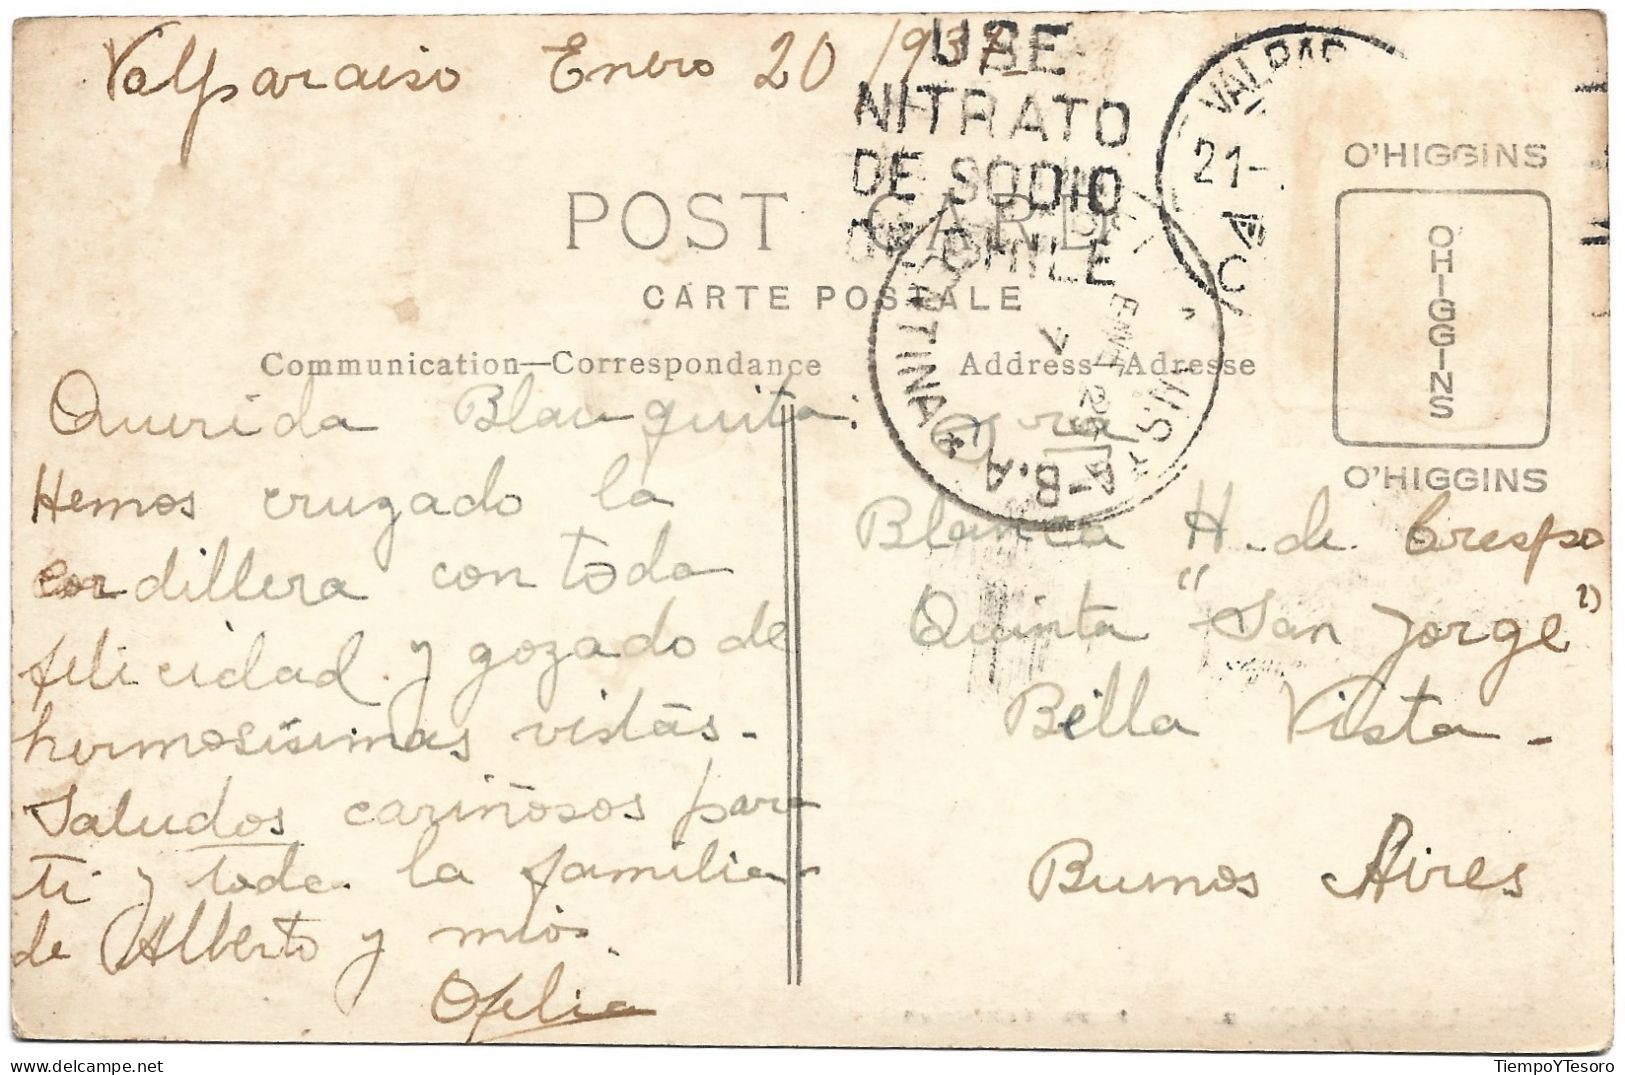 Valparaiso Enero 20 1937
USE
NITRATO
DE SODIO
DE CHILE
VALPAR
21-
POST CARD
CARTE POSTALE
Communication—Correspondance
Address—Adresse
O'HIGGINS
O'HIGGINS
O'HIGGINS
ARGENTINA
B.A
Querida Blanquita:
Hemos cruzado la
cordillera con toda
felicidad y gozado de
hermosísimas vistas.
Saludos cariñosos para
ti y toda la familia
de Alberto y mios.
Ofelia
Sra
Blanca H. de Crespo
Quinta "San Jorge"
Bella Vista -
Buenos Aires
TiempoYTesoro